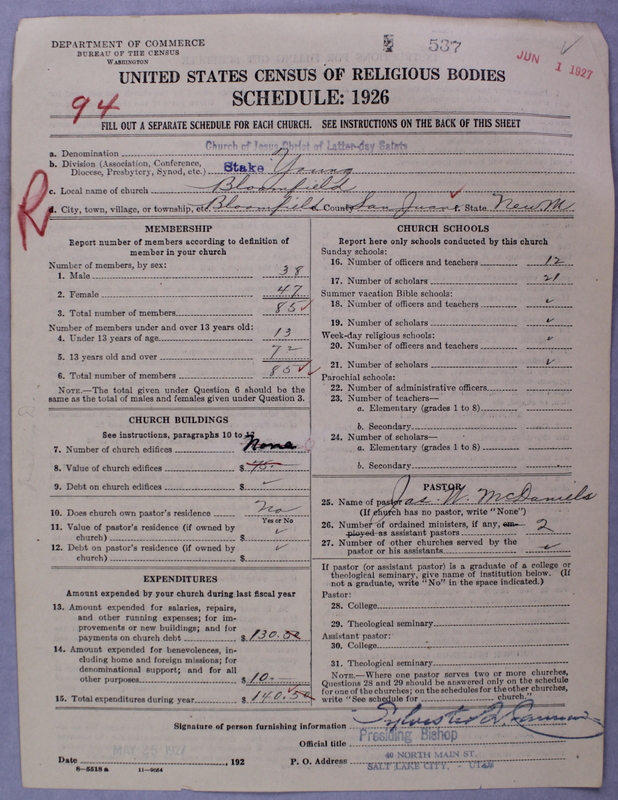 DEPARTMENT OF COMMERCE
BUREAU OF THE CENSUS
WASHINGTON
537
JUN 1 1927
UNITED STATES CENSUS OF RELIGIOUS BODIES
SCHEDULE: 1926
94
FILL OUT A SEPARATE SCHEDULE FOR EACH CHURCH. SEE INSTRUCTIONS ON THE BACK OF THIS SHEET
Church of Jesus Christ of Latter-day Saints
a. Denomination
b. Division (Association, Conference, Diocese, Presbytery, Synod, etc.) Stake Young
c. Local name of church Bloomfield
R
d. City, town, village, or township, etc. Bloomfield County San Juan f. State New M
MEMBERSHIP
Report number of members according to definition of
member in your church
Number of members, by sex:
1. Male 38
2. Female 47
3. Total number of members 85
Number of members under and over 13 years old:
4. Under 13 years of age 13
5. 13 years old and over 72
6. Total number of members 85
NOTE.—The total given under Question 6 should be
same as the total of males and females given under Question 3.
CHURCH BUILDINGS
See instructions, paragraphs 10 to
7. Number of church edifices None
8. Value of church edifices $
9. Debt on church edifices $
10. Does church own pastor's residence No
Yes or No
11. Value of pastor's residence (if owned by
church) $
12. Debt on pastor's residence (if owned by
church) $
EXPENDITURES
Amount expended by your church during last fiscal year
13. Amount expended for salaries, repairs,
and other running expenses; for im-
provements or new buildings; and for
payments on church debt $ 130.50
14. Amount expended for benevolences, in-
cluding home and foreign missions; for
denominational support; and for all
other purposes $ 10.
15. Total expenditures during year $ 140.50
CHURCH SCHOOLS
Report here only schools conducted by this church
Sunday schools:
16. Number of officers and teachers 12
17. Number of scholars 21
Summer vacation Bible schools:
18. Number of officers and teachers
19. Number of scholars
Week-day religious schools:
20. Number of officers and teachers
21. Number of scholars
Parochial schools:
22. Number of administrative officers
23. Number of teachers—
a. Elementary (grades 1 to 8)
b. Secondary
24. Number of scholars—
a. Elementary (grades 1 to 8)
b. Secondary
PASTOR
25. Name of pastor Jas. W. McDaniels
(If church has no pastor, write "None")
26. Number of ordained ministers, if any, em-
ployed as assistant pastors 2
27. Number of other churches served by the
pastor or his assistants
If pastor (or assistant pastor) is a graduate of a college or
theological seminary, give name of institution below. (If
not a graduate, write "No" in the space indicated.)
Pastor:
28. College
29. Theological seminary
Assistant pastor:
30. College
31. Theological seminary
NOTE.—Where one pastor serves two or more churches,
Questions 28 and 29 should be answered only on the schedule
for one of the churches; on the schedules for the other churches,
write "See schedule for church."
Signature of person furnishing information Sylvester Q. Cannon
Official title Presiding Bishop
MAY 25 1927
Date , 192 P. O. Address 40 NORTH MAIN ST.
SALT LAKE CITY, - UTAH
8—5518 a 11—9084